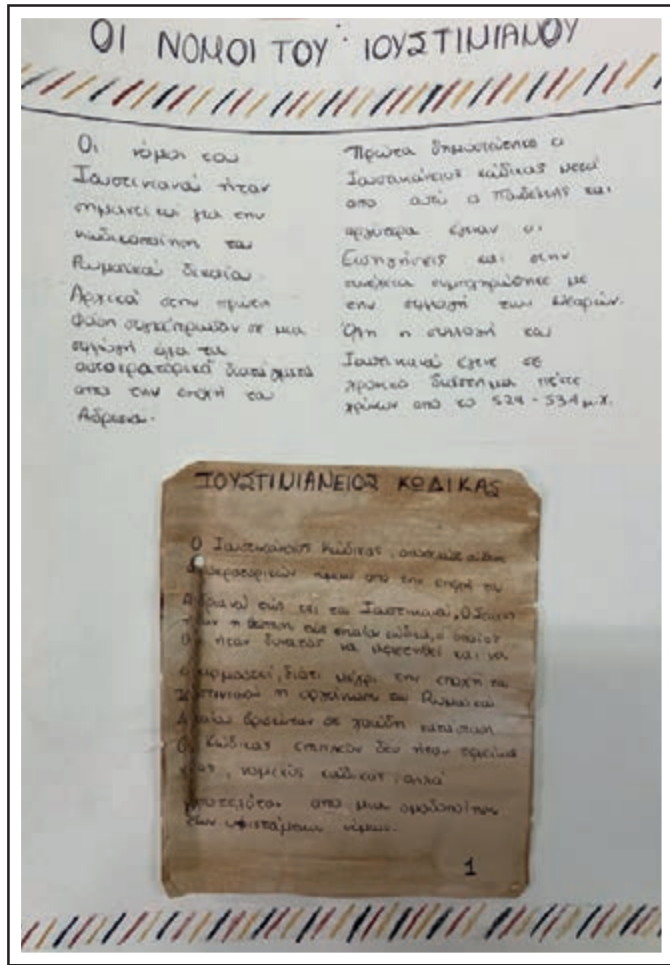 ΟΙ ΝΟΜΟΙ ΤΟΥ ΙΟΥΣΤΙΝΙΑΝΟΥ
Οι νόμοι του
Ιουστινιανού ήταν
σημαντικοί για την
κωδικοποίηση του
Ρωμαϊκού δικαίου.
Αρχικά στην πρώτη
φάση συγκέντρωσαν σε μια
συλλογή όλα τα
αυτοκρατορικά διατάγματα
από την εποχή του
Αδριανού.
Πρώτα δημοσιεύτηκε ο
Ιουστινιάνειος κώδικας μετά
από αυτό ο Πανδέκτης και
αργότερα έγιναν οι
Εισηγήσεις και στην
συνέχεια συμπληρώθηκε με
την συλλογή των Νεαρών.
Όλη η συλλογή του
Ιουστινιανού έγινε σε
χρονικό διάστημα πέντε
χρόνων από το 529 - 534 μ.Χ.
ΙΟΥΣΤΙΝΙΑΝΕΙΟΣ ΚΩΔΙΚΑΣ
Ο Ιουστινιάνειος Κώδικας,
αυτοκρατορικών νόμων από την εποχή του
Αδριανού έως και του Ιουστινιανού, Ο
ήταν η θέσπιση ενός ενιαίου κώδικα, ο οποίος
θα ήταν δυνατόν να και να
εφαρμοστεί, διότι μέχρι την εποχή του
Ιουστινιανού η οργάνωση του Ρωμαϊκού
Δικαίου βρισκόταν σε χαώδη κατάσταση
Ο Κώδικας επιπλέον δεν ήταν
νομικός κώδικας, αλλά
αποτελούταν από μια ομαδοποίηση
των υφιστάμενων νόμων.
1